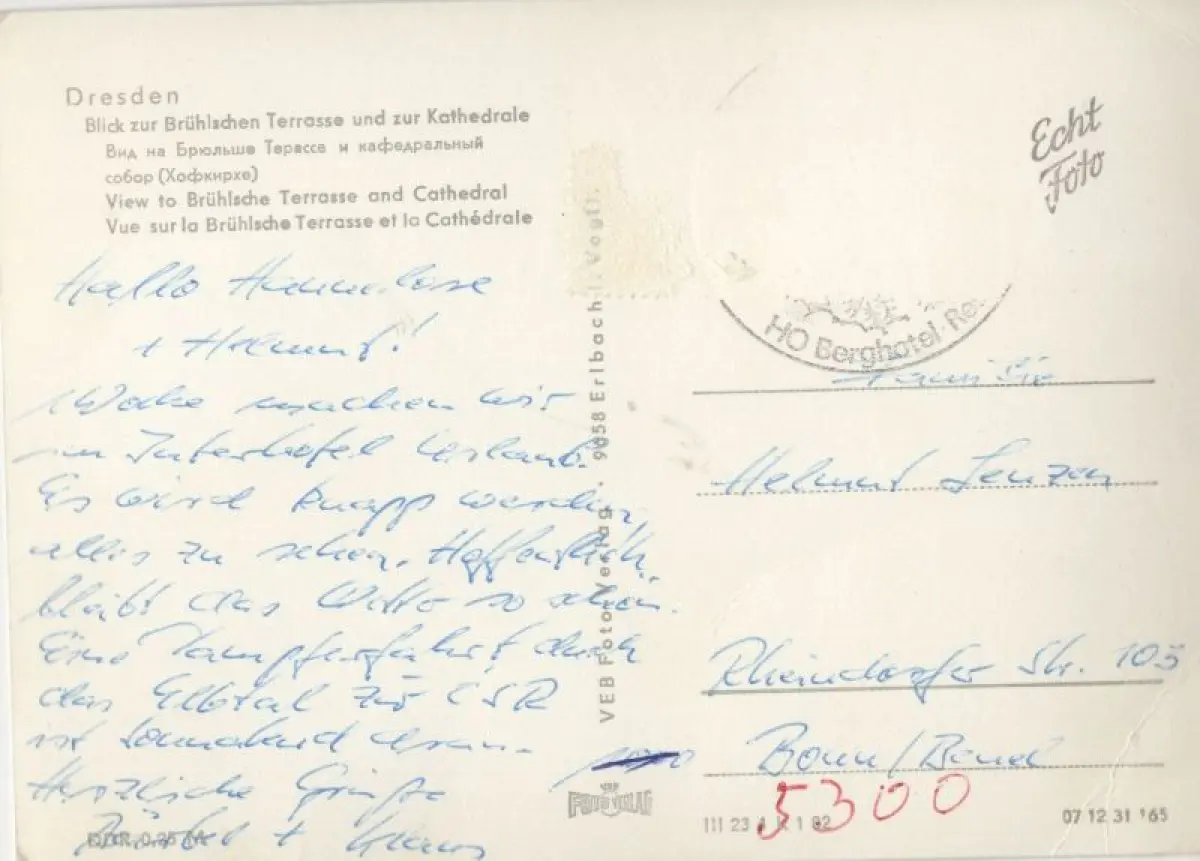 Dresden
Blick zur Brühlschen Terrasse und zur Kathedrale
Вид на Брюльше Терассе и кафедральный
собор (Хофкирхе)
View to Brühlsche Terrasse and Cathedral
Vue sur la Brühlsche Terrasse et la Cathédrale
Echt
Foto
HO Berghotel
Hallo Hannelore
+ Helmut!
1 Woche machen wir
im Interhotel Urlaub.
Es wird knapp werden,
alles zu sehen. Hoffentlich
bleibt das Wetter so schön.
Eine Dampferfahrt durch
das Elbtal zur CSR
ist Sonnabend dran.
Herzliche Grüße
Bärbel + Klaus
DDR 0,25 M
VEB Foto-Verlag · 9658 Erlbach i. Vogtl.
FOTO VERLAG
Familie
Helmut Lenzen
Rheindorfer Str. 105
Bonn/Beuel
5300
III 23 1 82
07 12 31 165